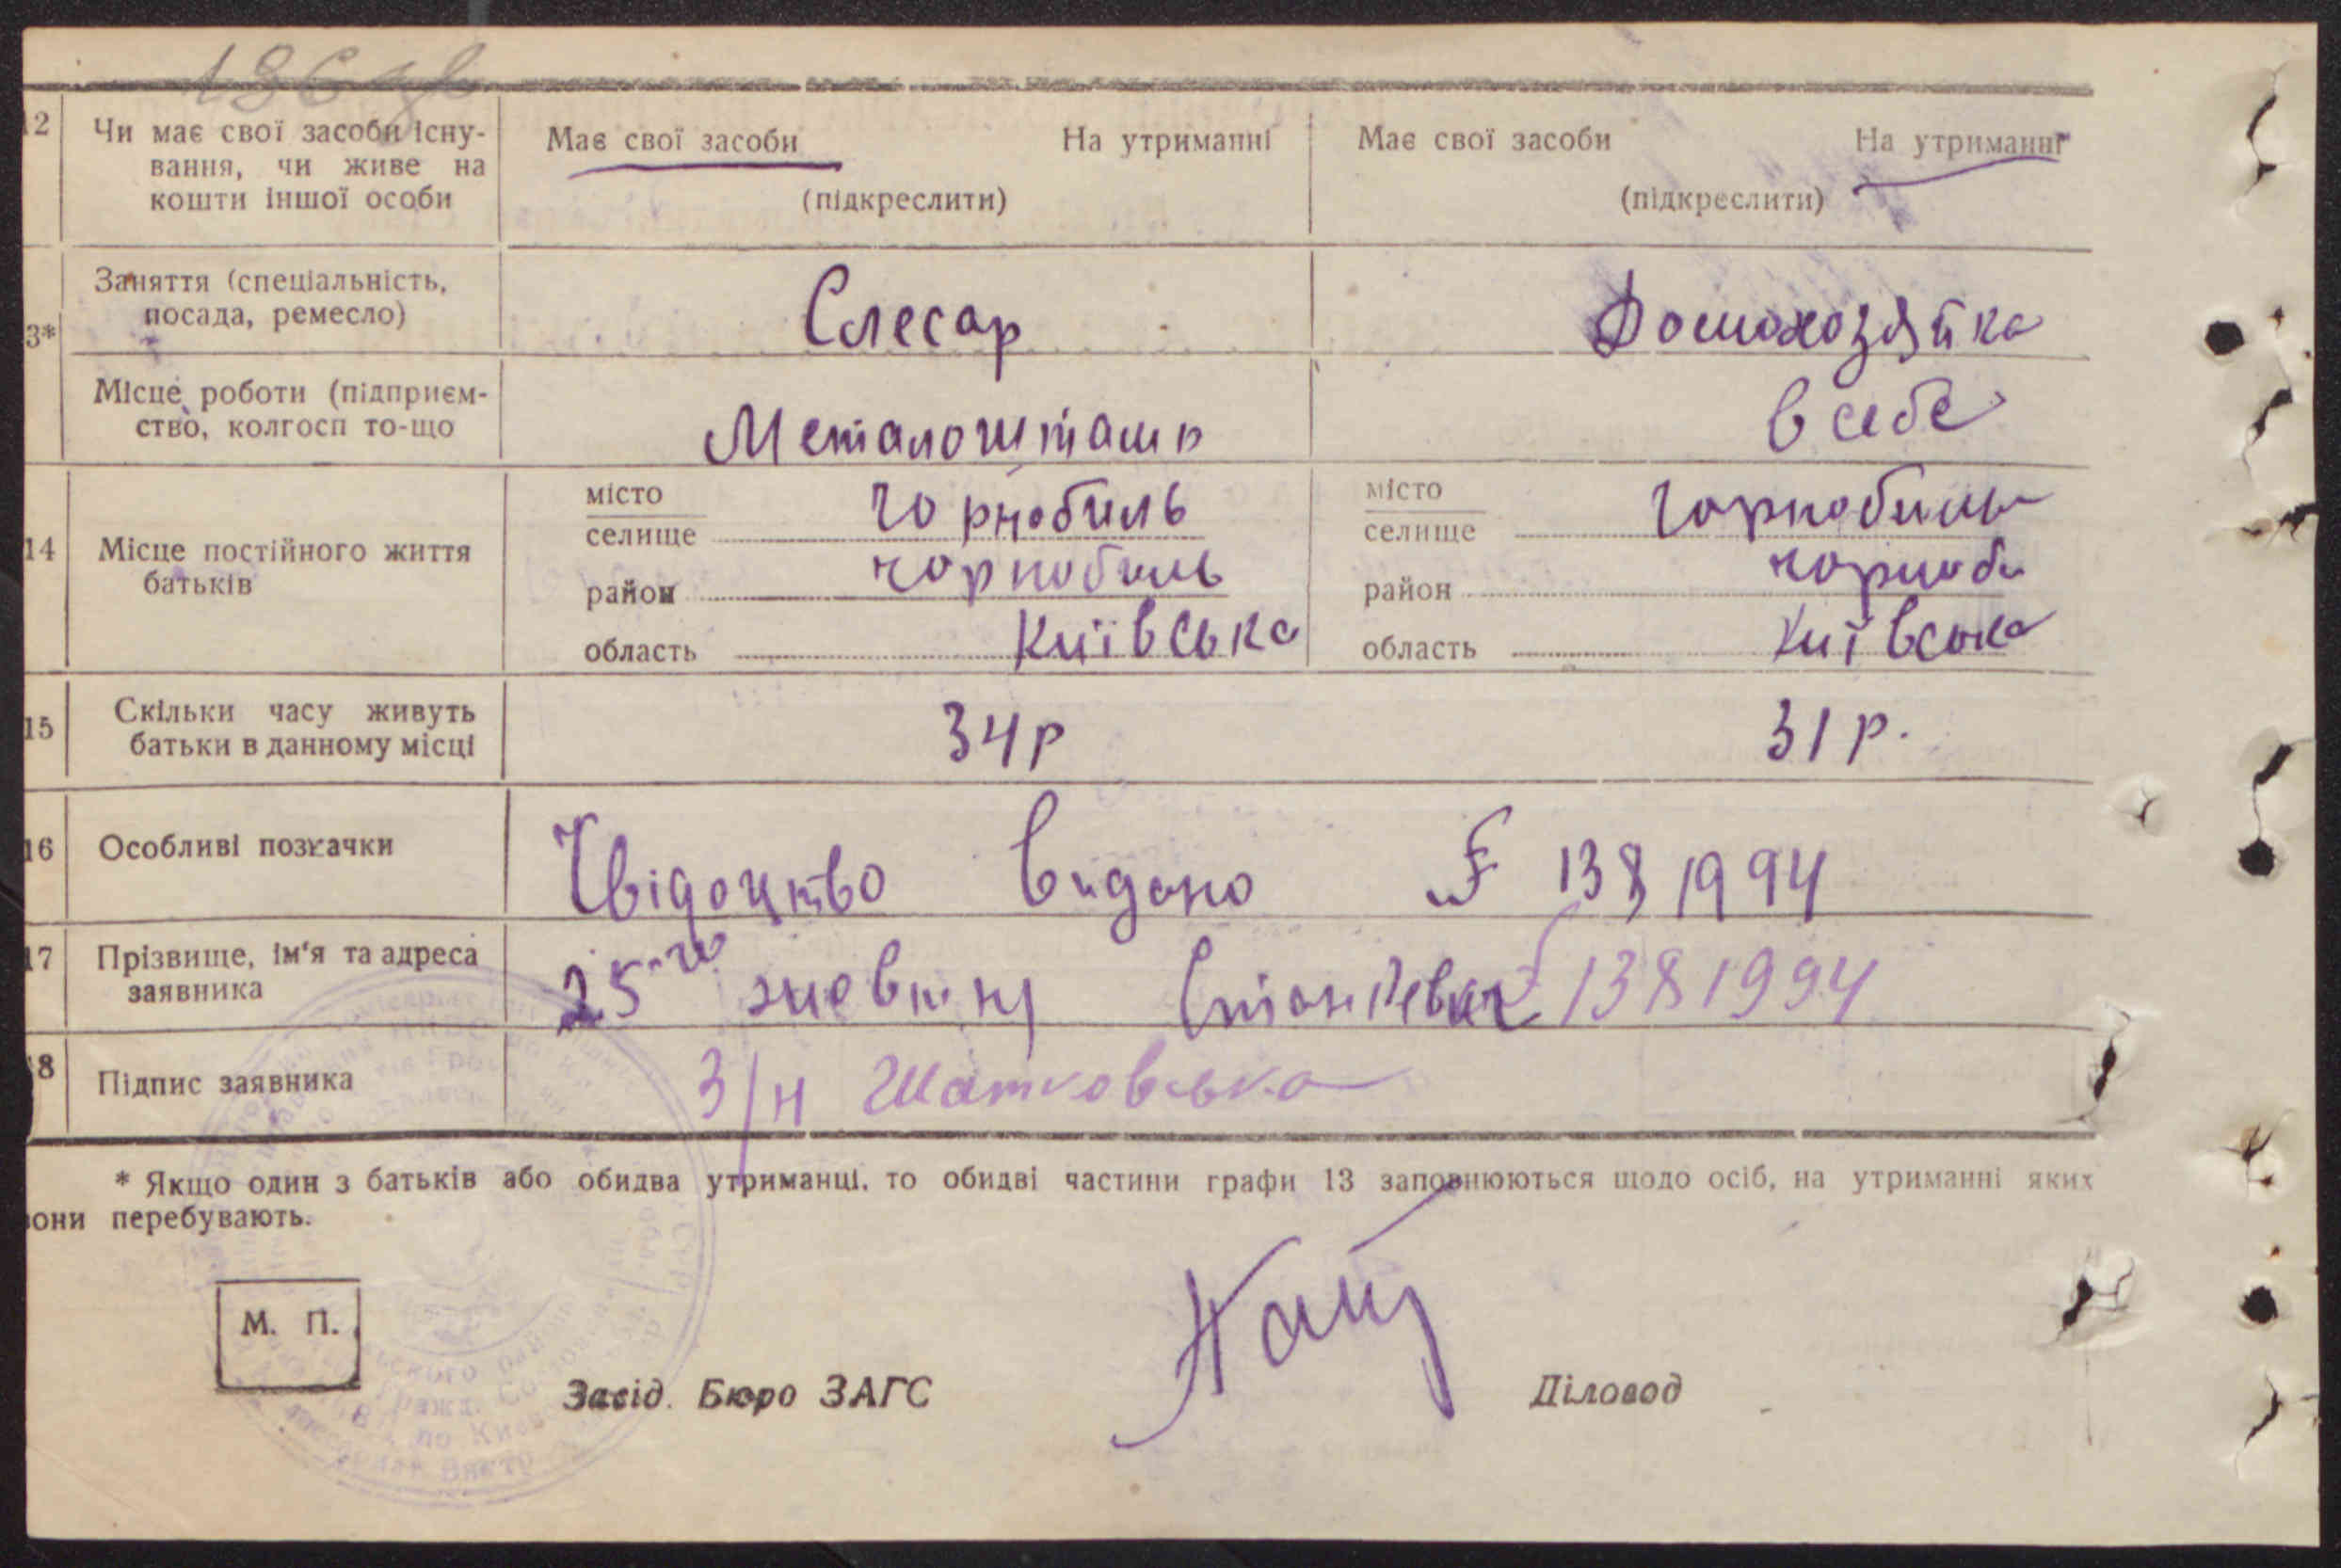 12 Чи має свої засоби існу-
вання, чи живе на
кошти іншої особи
Має свої засоби На утриманні
(підкреслити)
Має свої засоби На утриманні
(підкреслити)
13*
Заняття (спеціальність,
посада, ремесло)
Слесар
Домохозяйка
Місце роботи (підприєм-
ство, колгосп то-що
Металоштамп
в себе
14 Місце постійного життя
батьків
місто
селище Чорнобиль
район чорнобиль
область Київська
місто
селище Чорнобиль
район чорноб
область Київська
15 Скільки часу живуть
батьки в данному місці
34р
31р.
16 Особливі позначки
Свідоцтво видано № 1381994
17 Прізвище, ім'я та адреса
заявника
25-го 1381994
18 Підпис заявника
З/н Шатковська
* Якщо один з батьків або обидва утриманці, то обидві частини графи 13 заповнюються щодо осіб, на утриманні яких
вони перебувають.
М. П.
Завід. Бюро ЗАГС
Діловод